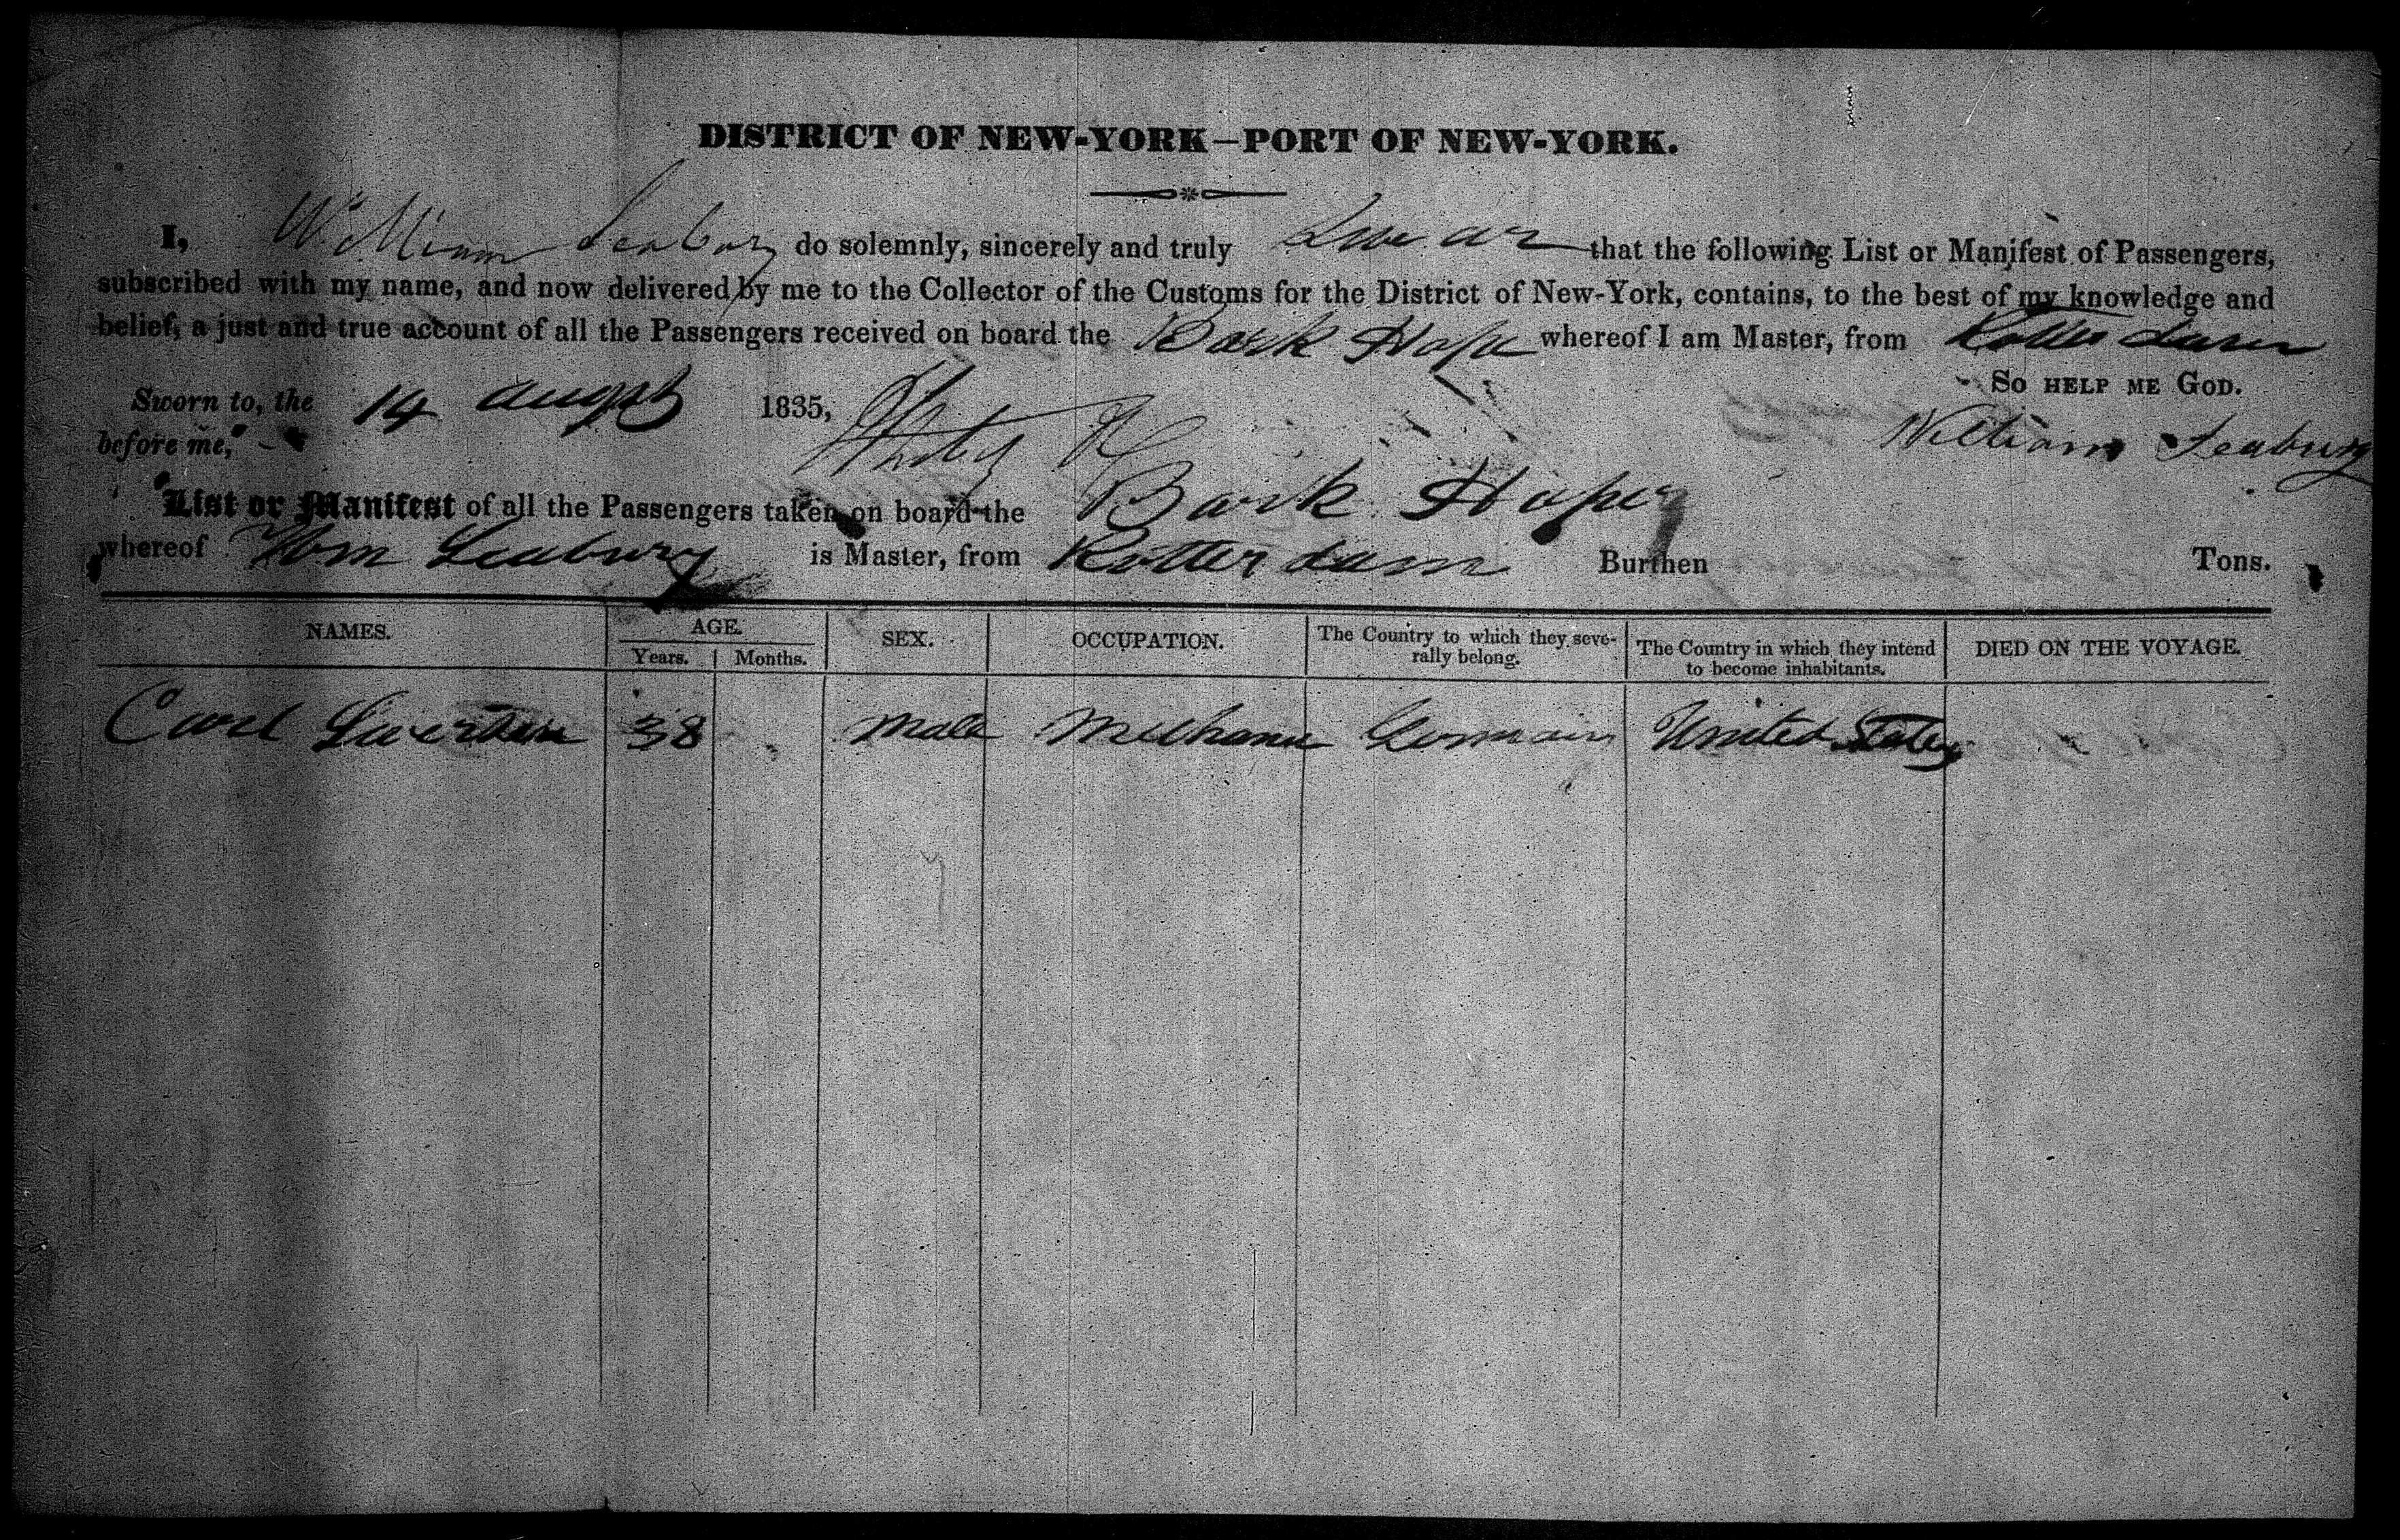 DISTRICT OF NEW-YORK—PORT OF NEW-YORK.
I, William Seabury do solemnly, sincerely and truly Swear that the following List or Manifest of Passengers,
subscribed with my name, and now delivered by me to the Collector of the Customs for the District of New-York, contains, to the best of my knowledge and
belief, a just and true account of all the Passengers received on board the Bark Hope whereof I am Master, from Rotterdam
So help me God.
Sworn to, the 14 August 1835,
before me,
William Seabury
List or Manifest of all the Passengers taken on board the Bark Hope
whereof Wm Seabury is Master, from Rotterdam Burthen Tons.
NAMES. AGE. SEX. OCCUPATION. The Country to which they seve-
rally belong. The Country in which they intend
to become inhabitants. DIED ON THE VOYAGE.
Years. Months.
Carl 38 Male Mechanic German United States